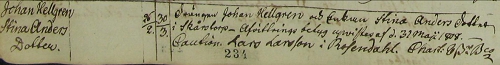 Johan Hellgren
Stina Anders
Dotter.
26 30
2. 3.
Drängen Johan Hellgren och Enkan Stina Anders Dotter
i Skårtorp Afvittrings betyg upvistes af d. 31 Maji 1808.
Caution. Lars Larsson i Rosendahl.
234